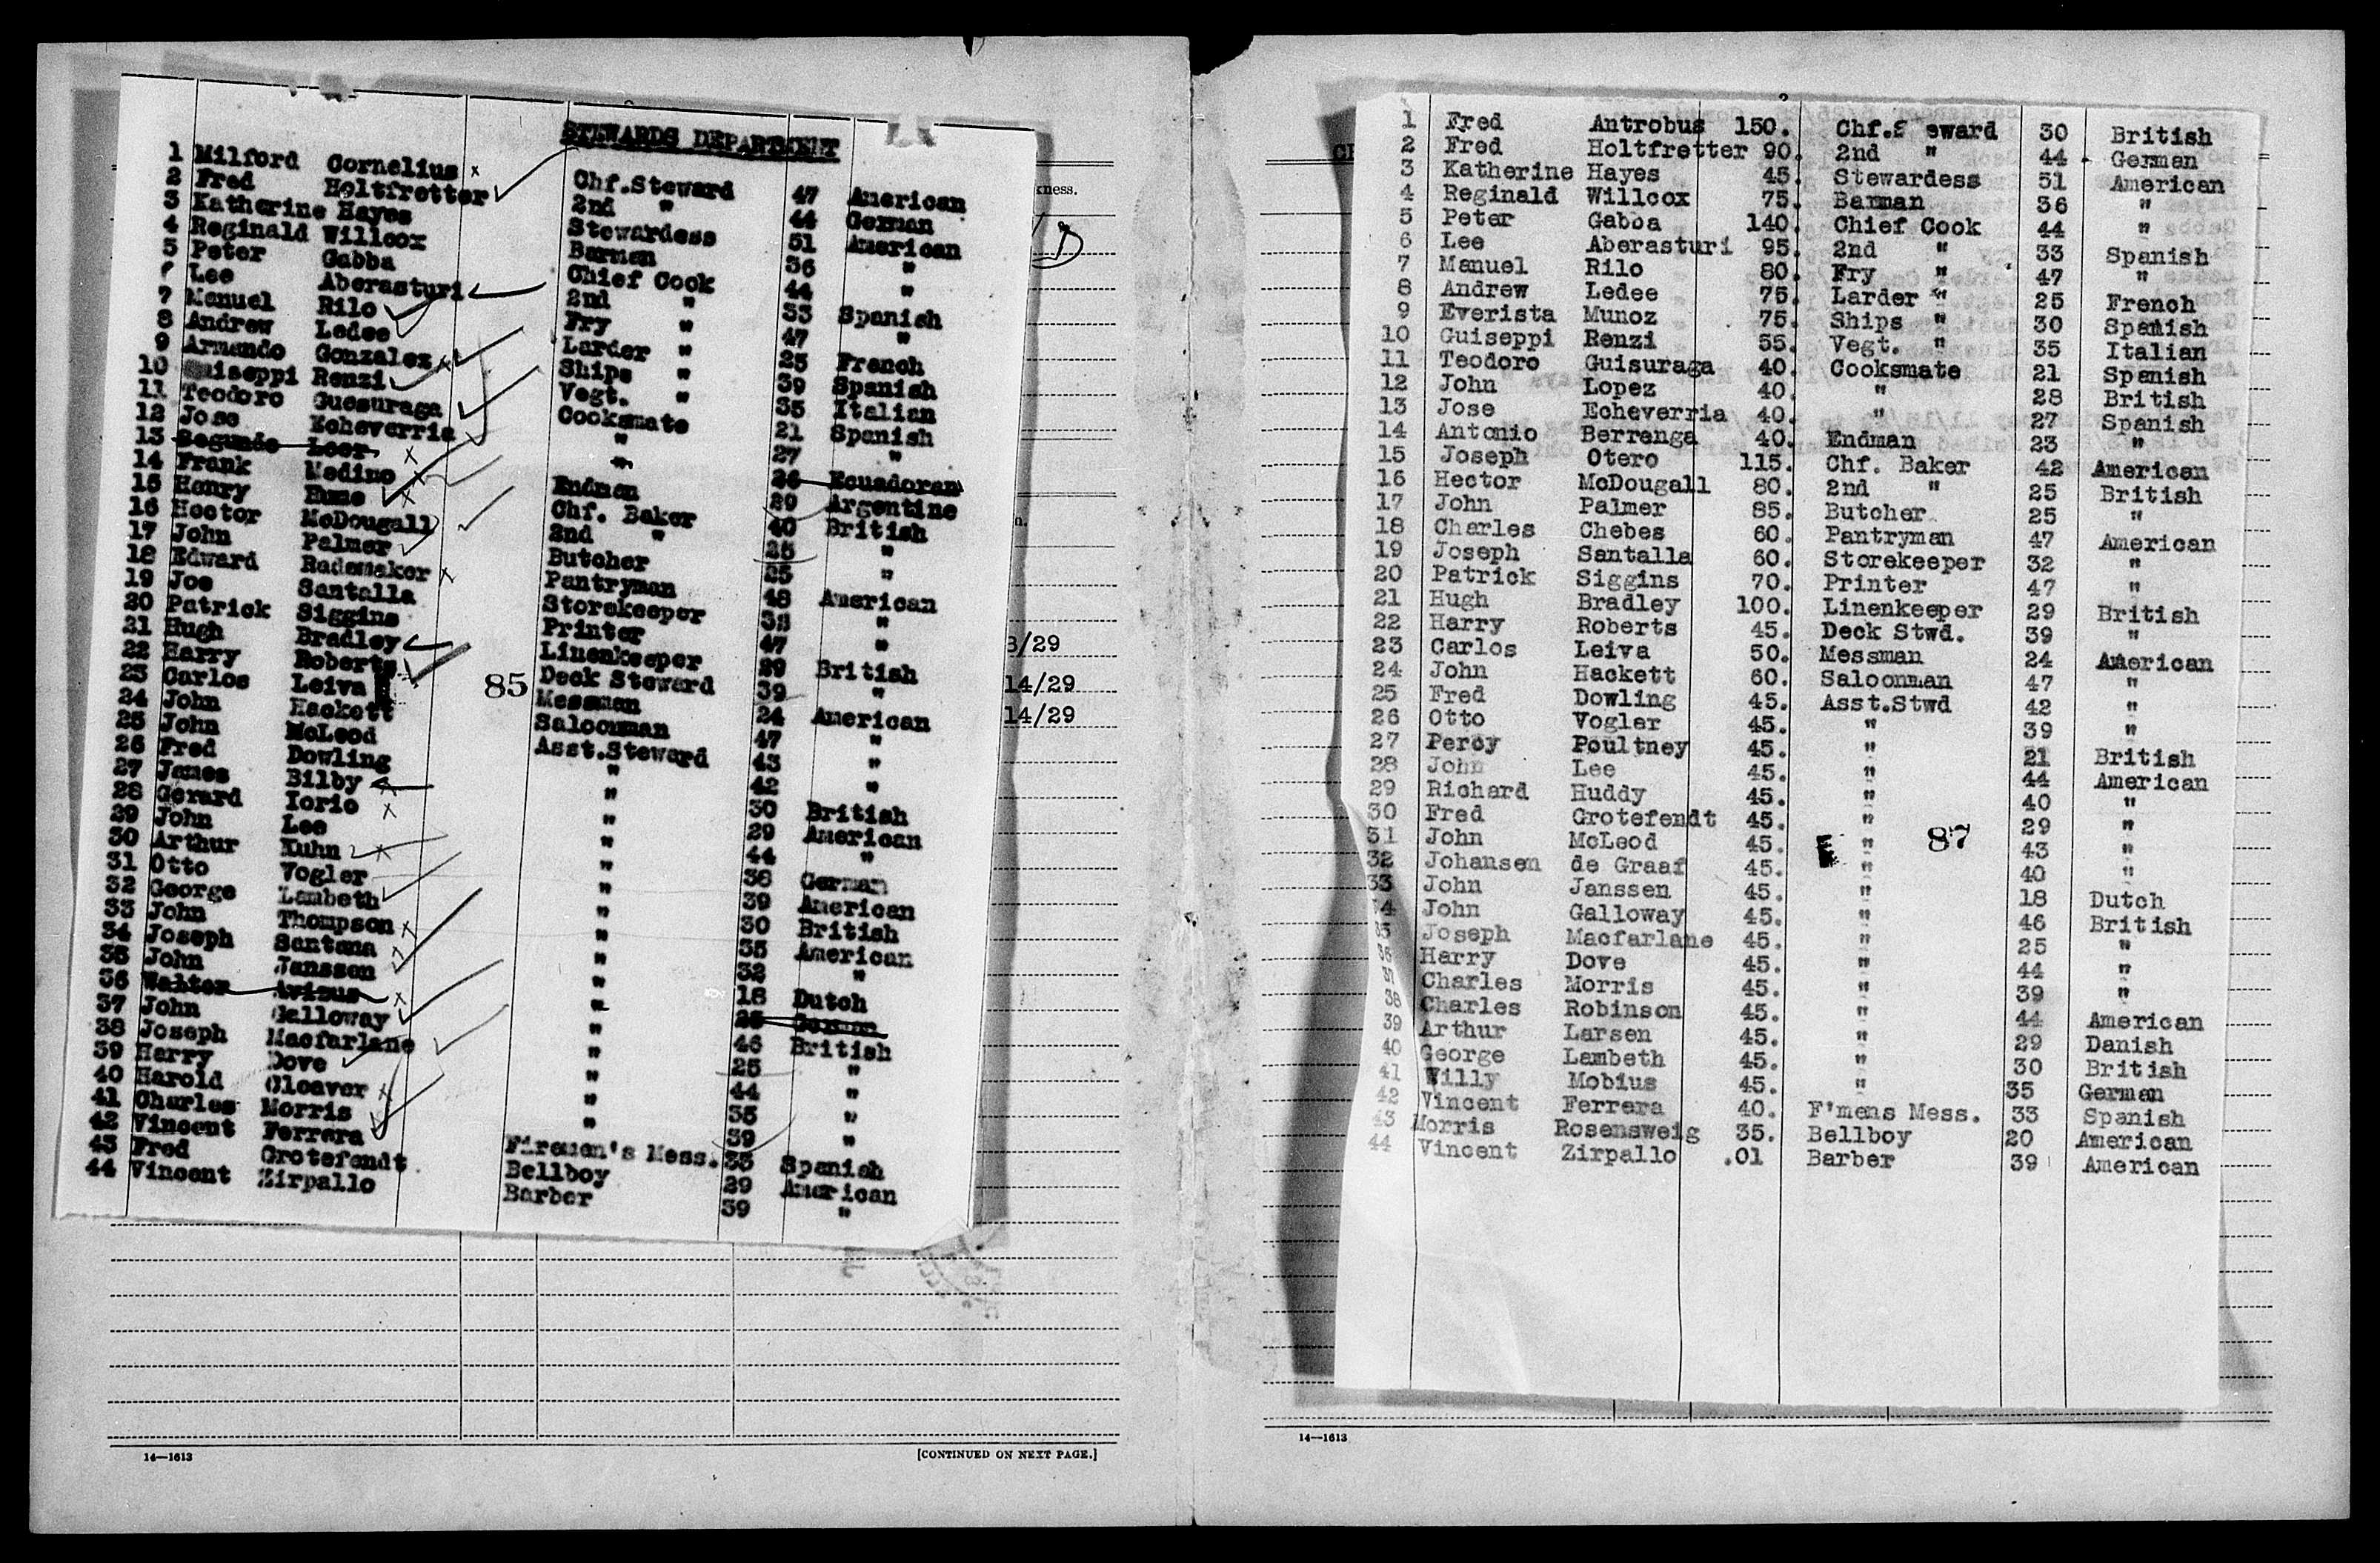 STEWARDS DEPARTMENT
1 Milford Cornelius x Chf.Steward 47 American
2 Fred Holtfretter 2nd " 44 German
3 Katherine Hayes Stewardess 51 American
4 Reginald Willcox Barman 36 "
5 Peter Gabba Chief Cook 44 "
6 Lee Aberasturi 2nd " 33 Spanish
7 Manuel Rilo Fry " 47 "
8 Andrew Ledee Larder " 25 French
9 Armando Gonzalez x Ships " 39 Spanish
10 Guiseppi Renzi Vegt. " 35 Italian
11 Teodoro Guesuraga Cooksmate 21 Spanish
12 Jose Echeverria " 27 "
13 Segundo Leer x " 26 Ecuadoran
14 Frank Medino x Endman 29 Argentine
15 Henry Hume x Chf. Baker 40 British
16 Hector McDougall 2nd " 25 "
17 John Palmer Butcher 25 "
18 Edward Rademaker x Pantryman 48 American
19 Joe Santalla Storekeeper 32 "
20 Patrick Siggins Printer 47 "
21 Hugh Bradley Linenkeeper 29 British
22 Harry Roberts Deck Steward 39 "
23 Carlos Leiva Messman 24 American
24 John Hackett Saloonman 47 "
25 John McLeod Asst.Steward 43 "
26 Fred Dowling " 42 "
27 James Bilby x " 30 British
28 Gerard Iorio x " 29 American
29 John Lee " 44 "
30 Arthur Kuhn x " 36 German
31 Otto Vogler " 39 American
32 George Lambeth " 30 British
33 John Thompson x " 35 American
34 Joseph Santana x " 32 "
35 John Janssen " 18 Dutch
36 Walter Avisus x " 25 German
37 John Galloway " 46 British
38 Joseph Macfarlane " 25 "
39 Harry Dove " 44 "
40 Harold Cleaver x " 35 "
41 Charles Morris " 39 "
42 Vincent Ferrera Firemen's Mess. 33 Spanish
43 Fred Grotefendt Bellboy 29 American
44 Vincent Zirpallo Barber 39 "
85
kness.
D
n.
3/29
14/29
14/29
14—1613
[CONTINUED ON NEXT PAGE.]
2
1 Fred Antrobus 150. Chf.S eward 30 British
2 Fred Holtfretter 90. 2nd " 44 German
3 Katherine Hayes 45. Stewardess 51 American
4 Reginald Willcox 75. Barman 36 "
5 Peter Gabba 140. Chief Cook 44 "
6 Lee Aberasturi 95. 2nd " 33 Spanish
7 Manuel Rilo 80. Fry " 47 "
8 Andrew Ledee 75. Larder " 25 French
9 Everista Munoz 75. Ships " 30 Spanish
10 Guiseppi Renzi 55. Vegt. " 35 Italian
11 Teodoro Guisuraga 40. Cooksmate 21 Spanish
12 John Lopez 40. " 28 British
13 Jose Echeverria 40. " 27 Spanish
14 Antonio Berrenga 40. Endman 23 "
15 Joseph Otero 115. Chf. Baker 42 American
16 Hector McDougall 80. 2nd " 25 British
17 John Palmer 85. Butcher 25 "
18 Charles Chebes 60. Pantryman 47 American
19 Joseph Santalla 60. Storekeeper 32 "
20 Patrick Siggins 70. Printer 47 "
21 Hugh Bradley 100. Linenkeeper 29 British
22 Harry Roberts 45. Deck Stwd. 39 "
23 Carlos Leiva 50. Messman 24 American
24 John Hackett 60. Saloonman 47 "
25 Fred Dowling 45. Asst.Stwd 42 "
26 Otto Vogler 45. " 39 "
27 Percy Poultney 45. " 21 British
28 John Lee 45. " 44 American
29 Richard Huddy 45. " 40 "
30 Fred Grotefendt 45. " 29 "
31 John McLeod 45. " 43 "
32 Johansen de Graaf 45. " 40 "
33 John Janssen 45. " 18 Dutch
34 John Galloway 45. " 46 British
35 Joseph Macfarlane 45. " 25 "
36 Harry Dove 45. " 44 "
37 Charles Morris 45. " 39 "
38 Charles Robinson 45. " 44 American
39 Arthur Larsen 45. " 29 Danish
40 George Lambeth 45. " 30 British
41 Willy Mobius 45. " 35 German
42 Vincent Ferrera 40. F'mens Mess. 33 Spanish
43 Morris Rosensweig 35. Bellboy 20 American
44 Vincent Zirpallo .01 Barber 39 American
87
14—1613